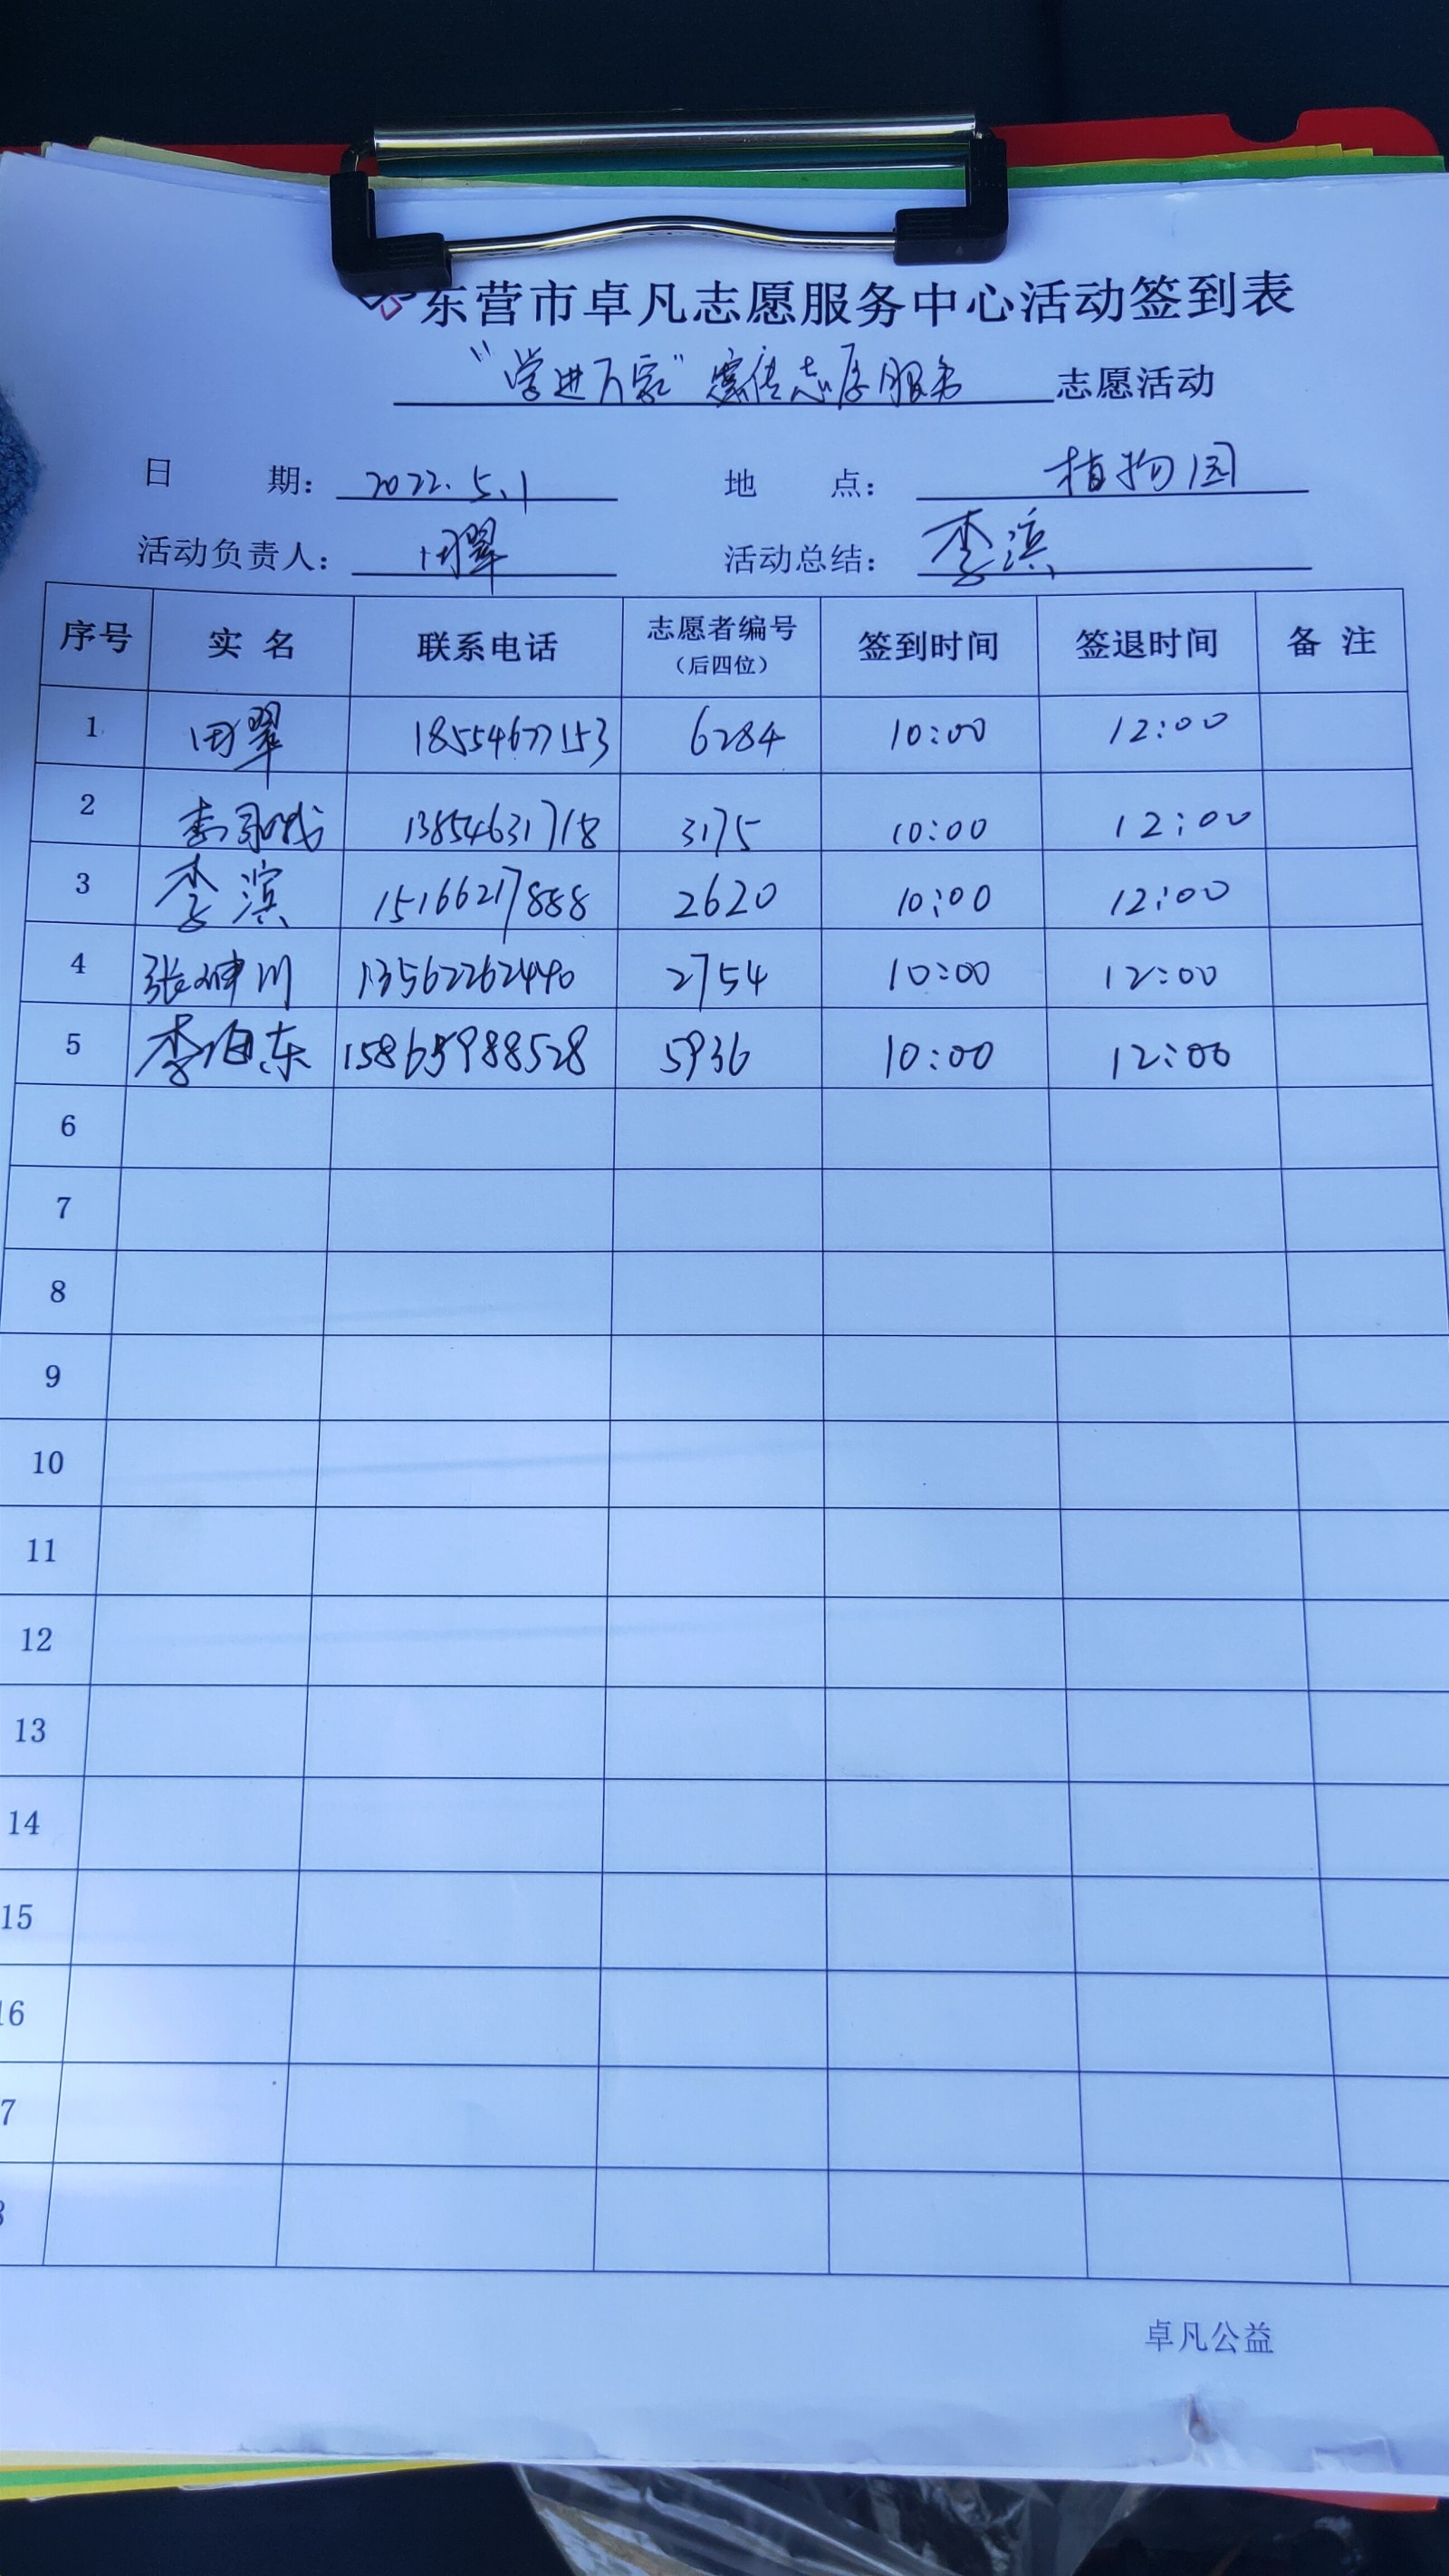 东营市卓凡志愿服务中心活动签到表
"学进万家"宣传志愿服务 志愿活动
日 期： 2022.5.1 地 点： 植物园
活动负责人： 田翠 活动总结： 李滨
序号 实 名 联系电话 志愿者编号（后四位） 签到时间 签退时间 备 注
1 田翠 18554677153 6284 10:00 12:00
2 13854631718 3175 10:00 12:00
3 李滨 15166217888 2620 10:00 12:00
4 张坤川 13562262440 2754 10:00 12:00
5 李伯东 15865988528 5936 10:00 12:00
6
7
8
9
10
11
12
13
14
15
16
7
卓凡公益